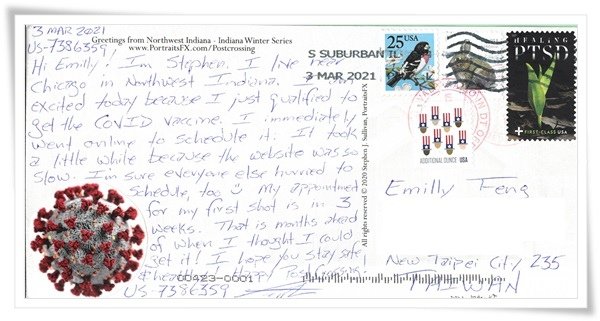 3 MAR 2021
US-7386359
Greetings from Northwest Indiana - Indiana Winter Series
www.PortraitsFX.com/Postcrossing
Hi Emilly! I'm Stephen. I live near
Chicago in Northwest Indiana. I'm
excited today because I just qualified to
get the COVID vaccine. I immediately
went online to schedule it. It took
a little while because the website was so
slow. I'm sure everyone else hurried to
schedule, too ☺ My appointment
for my first shot is in 3
weeks. That is months ahead
of when I thought I could
get it! I hope you stay safe
Happy Postcrossing
US-7386359
00423-0001
All rights reserved © 2020 Stephen J. Sullivan, PortraitsFX
S SUBURBAN IL
3 MAR 2021
25
USA
ADDITIONAL OUNCE USA
HEALING
PTSD
+ FIRST-CLASS USA
Emilly Feng
New Taipei City 235
TAIWAN